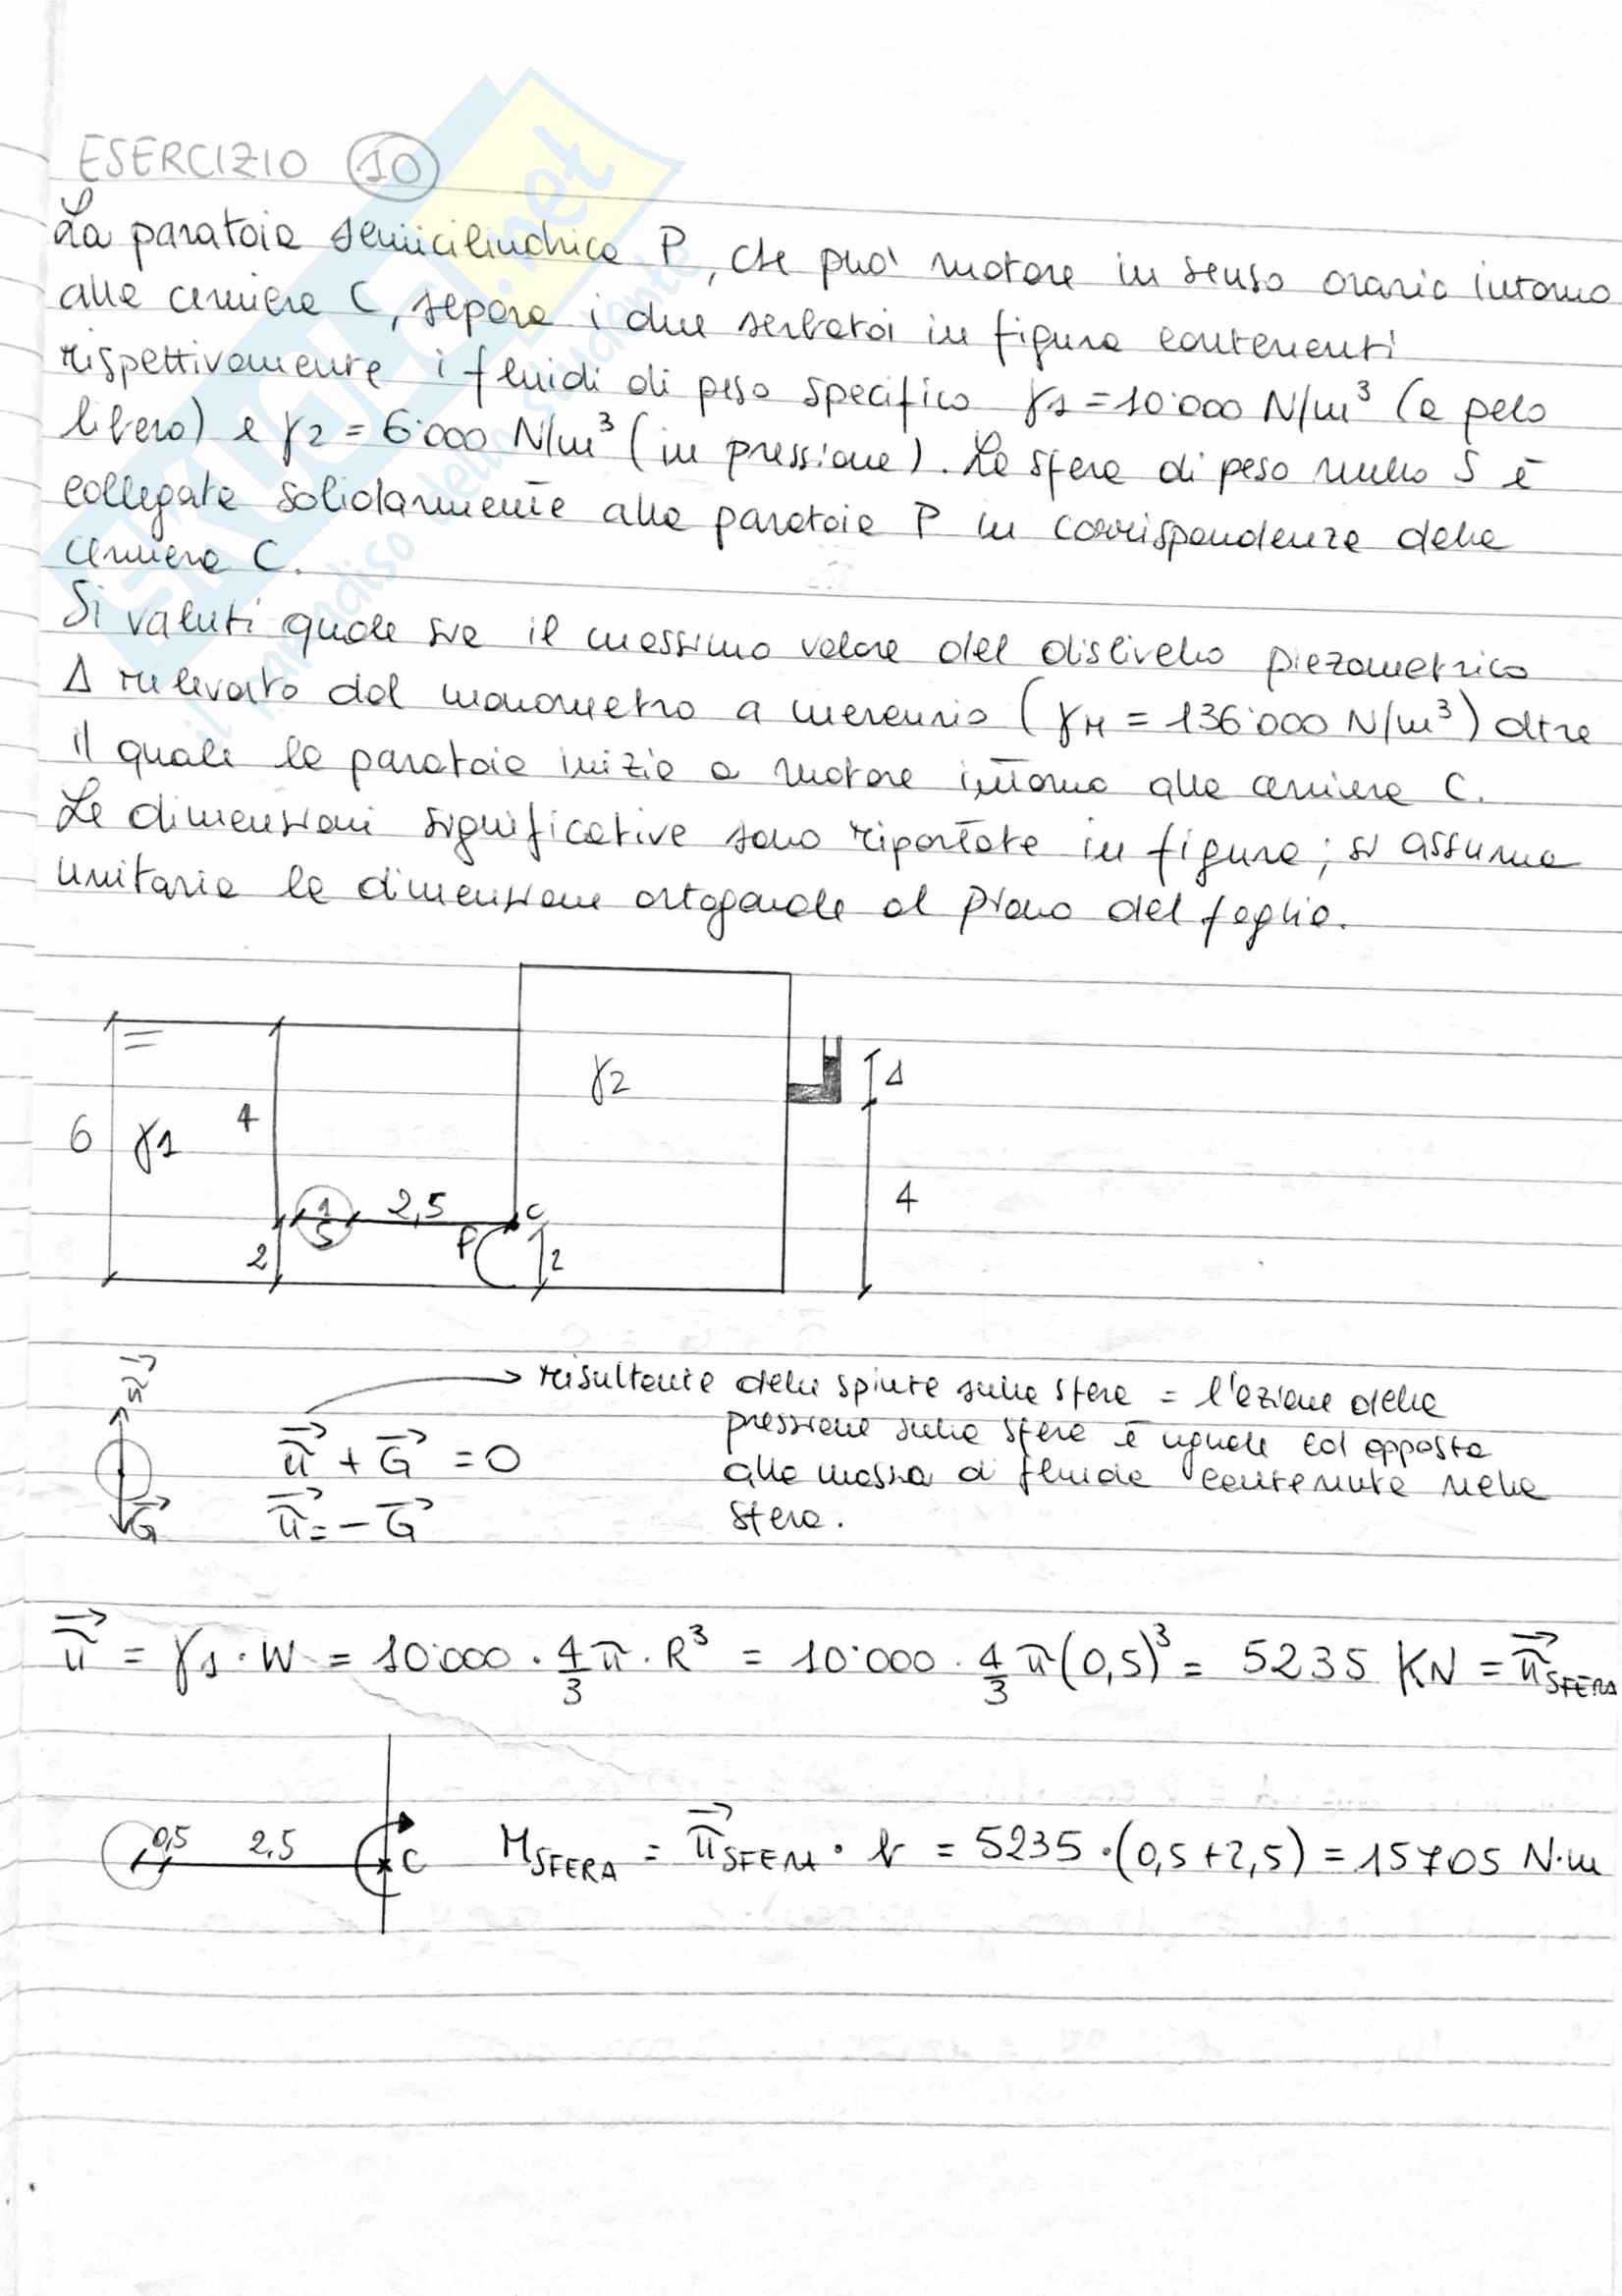 ESERCIZIO 10
La paratoia semicilindrica P, che può ruotare in senso orario intorno
alla cerniera C, separa i due serbatoi in figura contenenti
rispettivamente i fluidi di peso specifico γ1 = 10'000 N/m³ (a pelo
libero) e γ2 = 6'000 N/m³ (in pressione). La sfera di peso nullo S è
collegata solidarmente alla paratoia P in corrispondenza della
cerniera C.
Si valuti quale sia il massimo valore del dislivello piezometrico
Δ rilevato dal manometro a mercurio (γM = 136'000 N/m³) oltre
il quale la paratoia inizia a ruotare intorno alla cerniera C.
Le dimensioni significative sono riportate in figura; si assuma
unitaria la dimensione ortogonale al piano del foglio.
γ2
Δ
6 γ1 4
1 2,5 C 4
S
P
2 2
π
→ risultante delle spinte sulla sfera = l'azione della
pressione sulla sfera è uguale ed opposta
alla massa di fluido contenuta nella
sfera.
π + G = 0
π = - G
G
π = γ1 · W = 10'000 · 4/3 π · R³ = 10'000 · 4/3 π (0,5)³ = 5235 KN = π SFERA
0,5 2,5 C
M SFERA = π SFERA · b = 5235 · (0,5 + 2,5) = 15705 N·m
SKUOLA.net
il paradiso dello studente